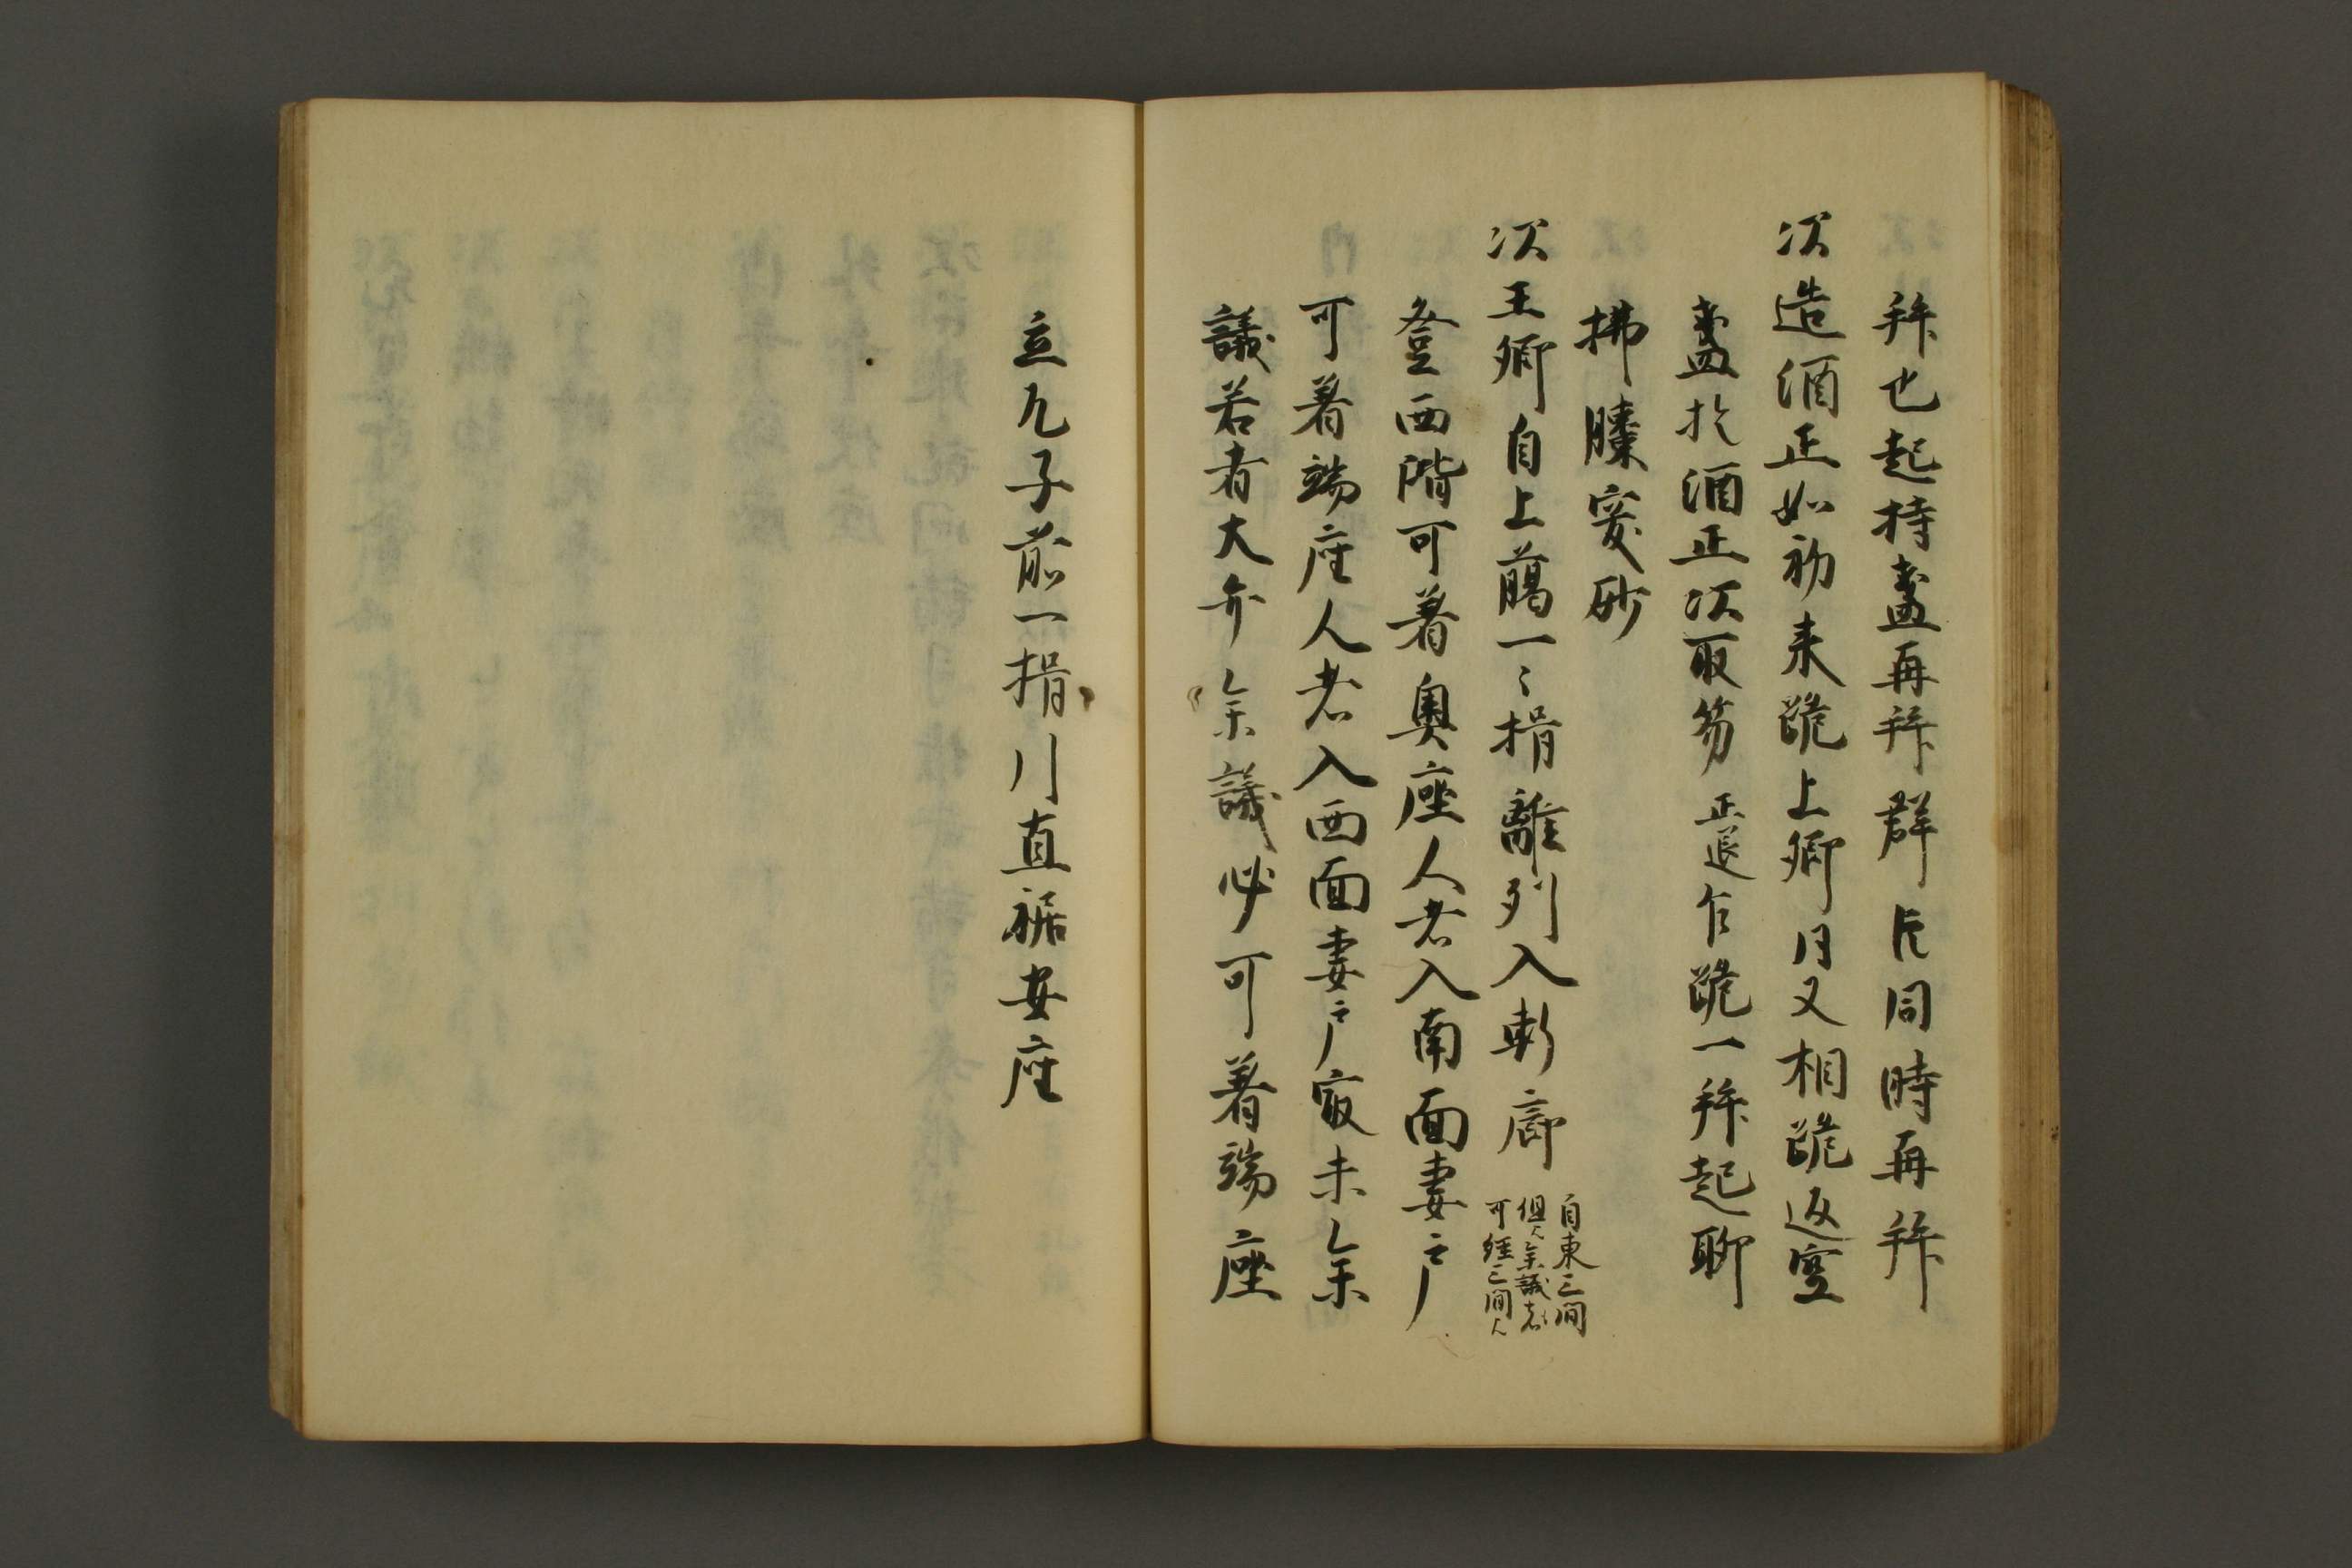 拜也起持盞再拜群臣同時再拜
次造酒正如初来跪上卿目又相跪返空
盞於酒正次取笏正退乍跪一拜起聊
拂膝突砂
次王卿自上﨟一〻揖離列入軒廊
自東三間
但参議者
可経二間
登西階可着奥座人者入南面妻戸
可着端座人者入西面妻戸寂末参
議若者大弁参議必可着端座
立兀子前一揖川直裾安座